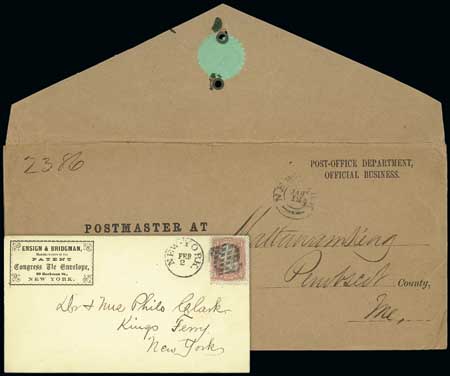 2386
POST-OFFICE DEPARTMENT,
OFFICIAL BUSINESS.
POSTMASTER AT Mattawamkeag
Penobscot County,
Me,
ENSIGN & BRIDGMAN,
PATENT
Congress Tie Envelope,
NEW YORK.
NEW-YORK
FEB
2
Dr & Mrs Philo Clark
Kings Ferry
New York